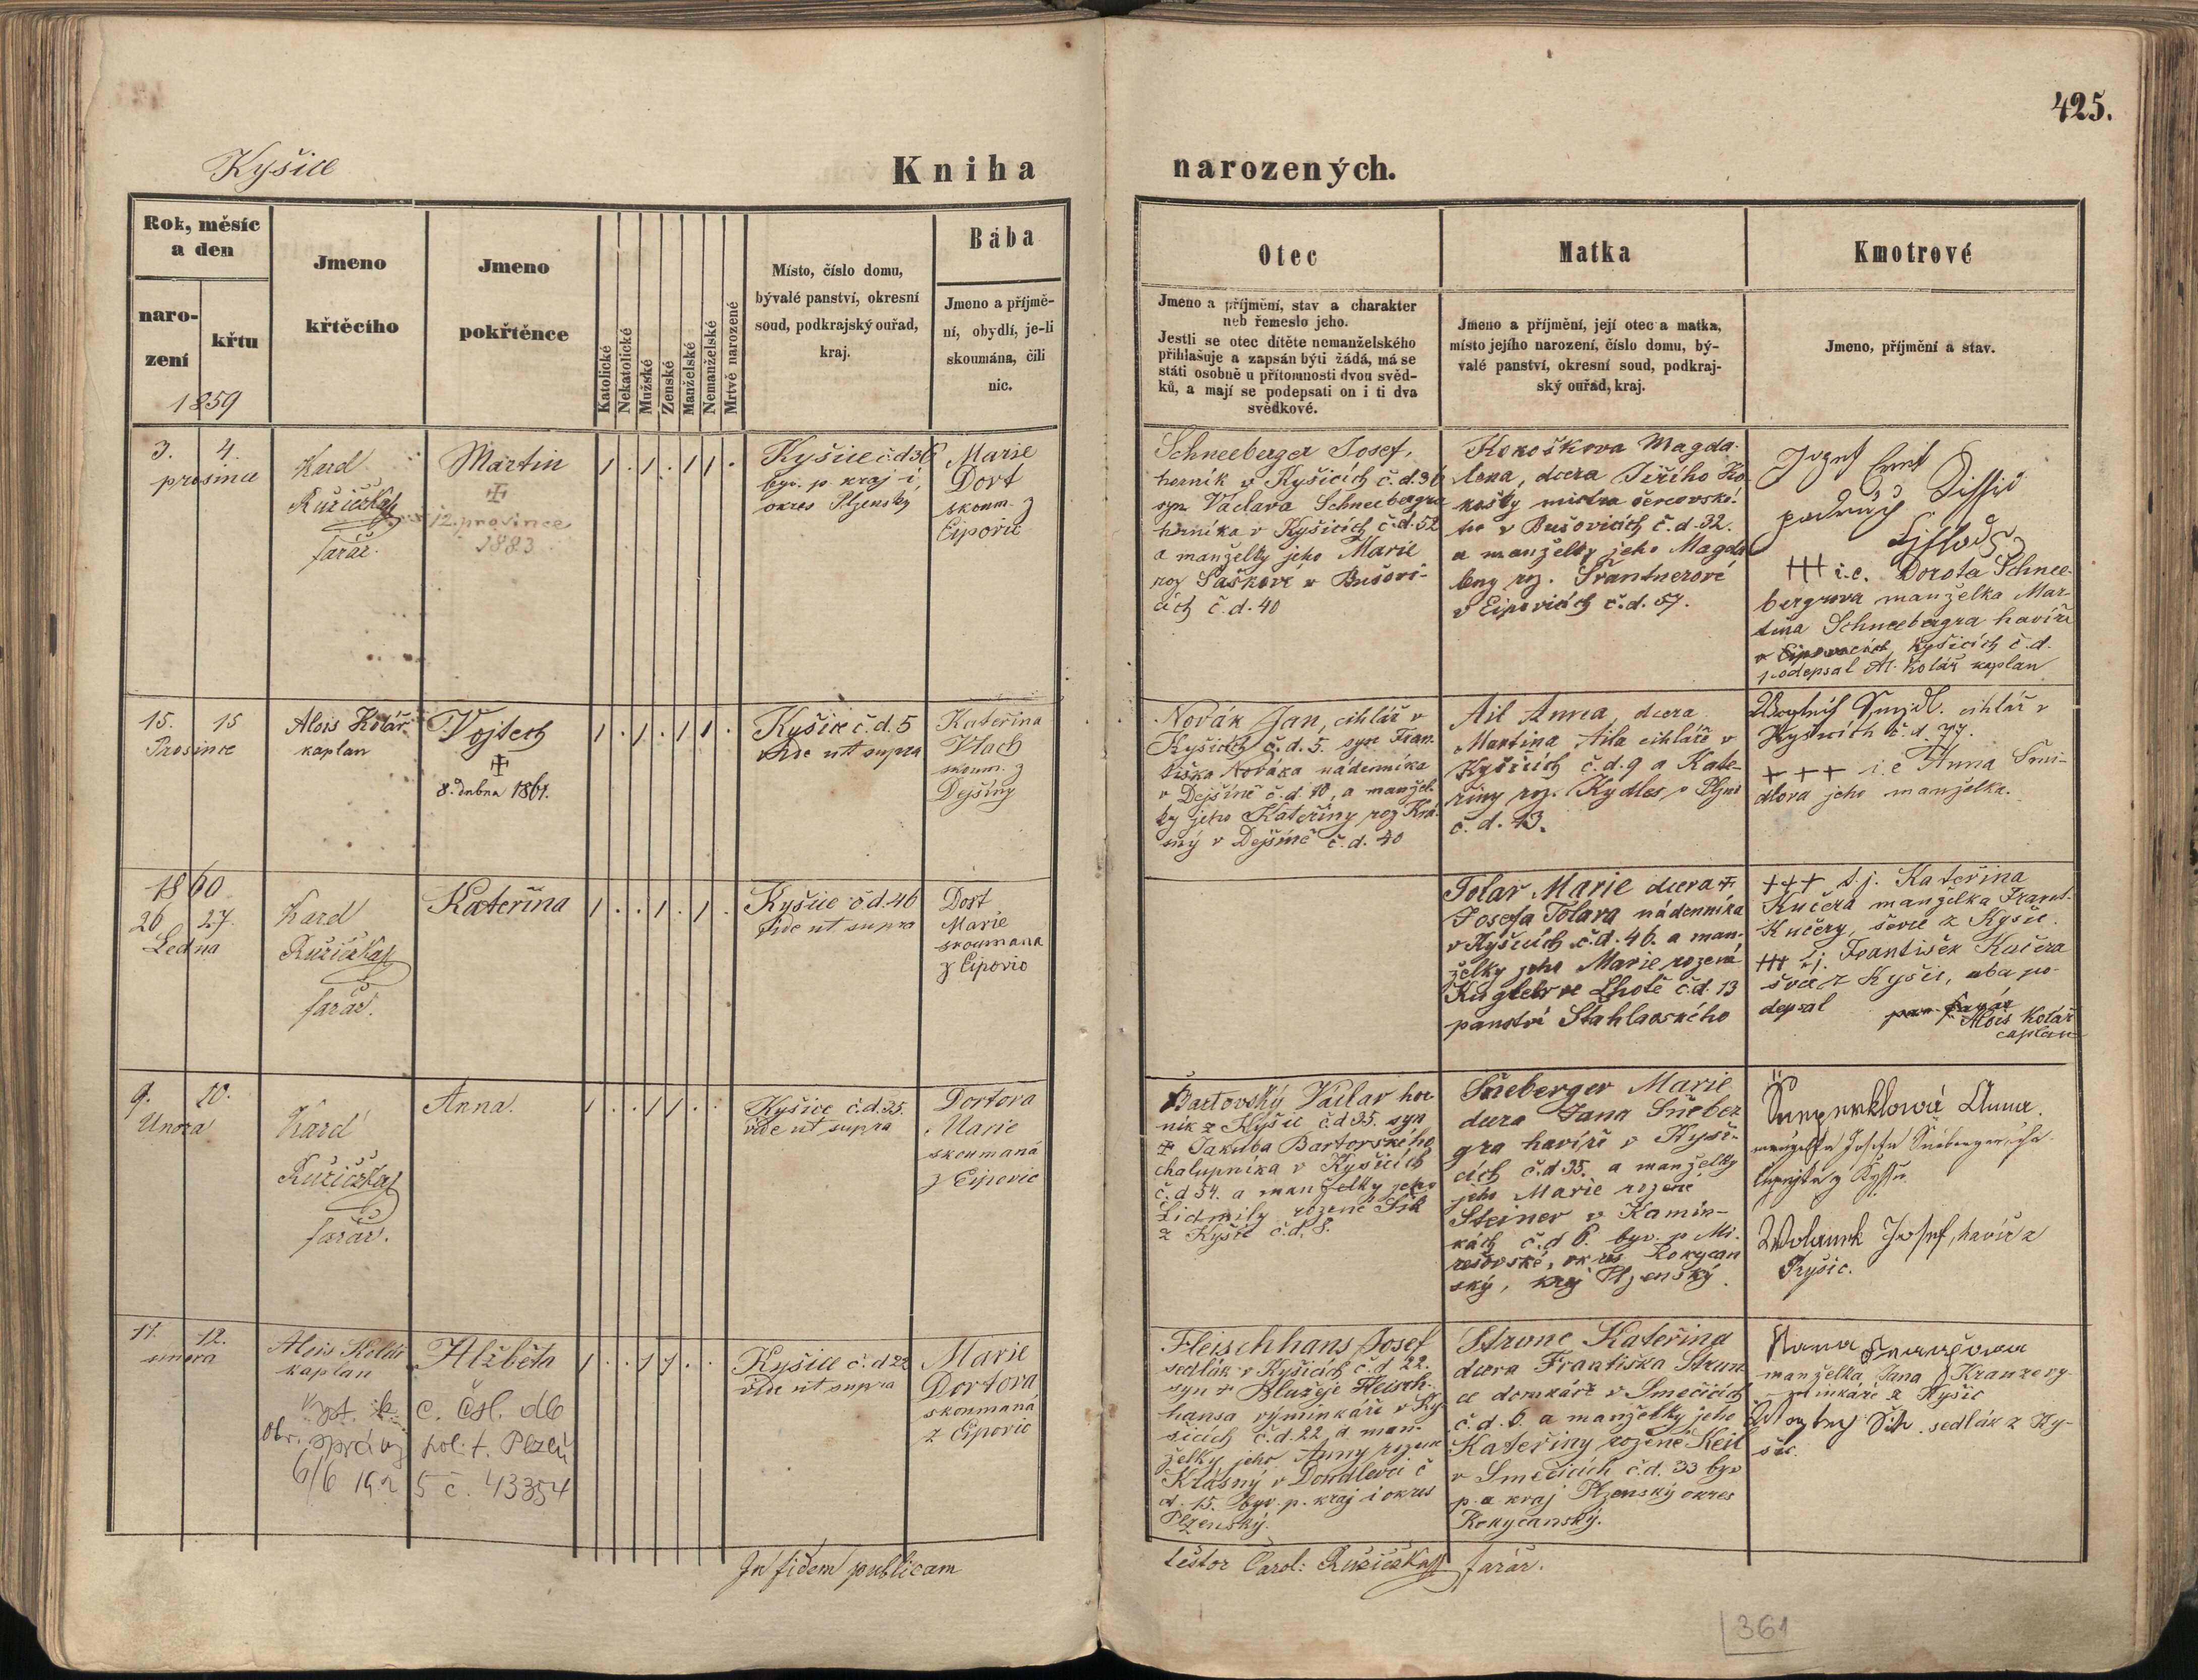 425.
Kyšice
Kniha narozených.
Rok, měsíc
a den
naro-
zení
křtu
1859
Jmeno
křtěcího
Jmeno
pokřtěnce
Katolické
Nekatolické
Mužské
Zenské
Manželské
Nemanželské
Mrtvě narozené
Místo, číslo domu,
bývalé panství, okresní
soud, podkrajský ouřad,
kraj.
Bába
Jmeno a příjmě-
ní, obydlí, je-li
skoumána, čili
nic.
Otec
Jmeno a příjmění, stav a charakter
neb řemeslo jeho.
Jestli se otec dítěte nemanželského
přihlašuje a zapsán býti žádá, má se
státi osobně u přítomnosti dvou svěd-
ků, a mají se podepsati on i ti dva
svědkové.
Matka
Jmeno a příjmění, její otec a matka,
místo jejího narození, číslo domu, bý-
valé panství, okresní soud, podkraj-
ský ouřad, kraj.
Kmotrové
Jmeno, příjmění a stav.
3. 4.
prosince
Karel
Růžička
farář.
Martin
12. prosince
1883
Kyšice č.d 36
byv. p. kraj i
okres Plzensky
Marie
Dort
skoum. z
Eipovic
Schneeberger Josef,
horník v Kyšicích č.d.36
syn Vaclava Schneebergra
horníka v Kyšicích č.d.52
a manželky jeho Marie
roz Saškové v Bušovi-
cích č.d.40
Kokoškova Magda-
lena, dcera Jiřího Ko-
košky mistra
ho v Bušovicích č.d.32.
a manželky jeho Magda
leny roz. Srantnerové
v Eipovicích č.d.57.
+++ i.e. Dorota Schnee-
bergrova manželka Mar-
tina Schneebergra havíře
v Kyšicích č.d.
podepsal Al. Kolář kaplan
15. 15
Prosince
Alois Kolář
kaplan
Vojtech
8. dubna 1861.
Kyšice č.d.5
vide ut supra
Kateřina
Vlach
skoum. z
Dejšiny
Novák Jan, cihlář v
Kyšicích č.d.5. syn Fran-
tiška Nováka nádenníka
v Dejšině č.d 10, a manžel-
ky jeho Kateřiny roz Krá-
sný v Dejšině č.d.40
Ail Anna, dcera
Martina Aila cihláře v
Kyšicích č.d.9 a Kate-
řiny roz. Kydles v Plzni
č.d.43.
Šmidl. cihlář v
Kyšicích č.d. 77.
+++ i.e Anna Šmi-
dlova jeho manželka.
1860
26 27.
Ledna
Karel
Růžička
farář.
Kateřina
Kyšice č.d.46
vide ut supra
Dort
Marie
skoumana
z Eipovic
Tolar Marie dcera
Josefa Tolara nádenníka
v Kyšicích č.d.46. a man-
želky jeho Marie rozená
Kugler ve Lhotě č.d.13
panství Stahlavského
+++ t.j. Kateřina
Kučera manželka Frant.
Kučery, ševce z Kyšic.
+++ t.j. František Kučera
švec z Kyšic, oba po-
depsal
Alois Kolář
caplan
9. 10.
Unora
Karel
Růžička
farář.
Anna.
Kyšice č.d.35.
vide ut supra
Dortova
Marie
skoumaná
z Eipovic
Bartovský Václav hor
ník z Kyšic č.d 35. syn
Jakuba Bartovského
chalupníka v Kyšicích
č.d 54. a manželky jeho
Lidmily rozené Sik
z Kyšic č.d. 8.
Sneberger Marie
dcera Jana Sneber
gra havíře v Kyši-
cích č.d 35. a manželky
jeho Marie rozené
Steiner v Kamin-
kách č.d 6. byv. p Mi-
rešovské, okres Rokycan
ský, kraj Plzenský.
Anna.
Wolanek Josef, havíř z
Kyšic.
11. 12.
unora
Alois Kolář
kaplan
Alžběta
Kyšice č.d 22
vide ut supra
Marie
Dortová
skoumaná
z Eipovic
Fleischhans Josef
sedlák v Kyšicích č.d 22.
syn Blažeje Fleisch-
hansa výminkáře v Ky-
šicích č.d.22, a man-
želky jeho Anny rozené
Krásný v Doudlevci č
d.15. byv. p. kraj i okres
Plzenský.
Strunc Kateřina
dcera Františka Strun
ce domkáře v Smečicích
č.d.6. a manželky jeho
Kateřiny rozené Keil
v Smečicích č.d. 33 byv
p. a kraj Plzenský okres
Rokycanský.
manželka Jana
z Kyšic
Sik. sedlák z Ky-
šic.
č. 43354
In fidem publicam
testor Carol: Růžička farář.
361